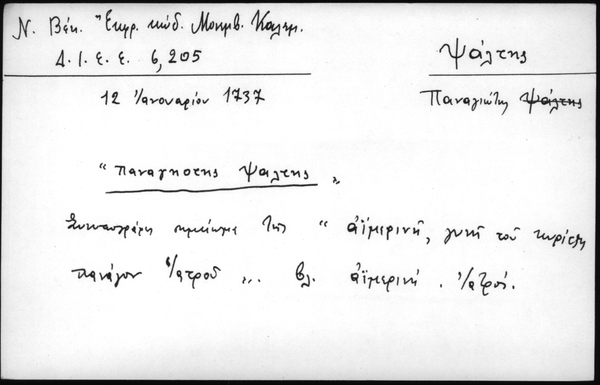 Ν. Βέη. Ἔκφρ. κώδ. Μονμβ. Καλαμ.
Δ. Ι. Ε. Ε. 6, 205
Ψάλτης
12 Ἰανουαρίου 1737
Παναγιώτης Ψάλτης
"παναγηοτης ψαλτης"
Συνυπογράφει σημείωμα της "αἰμερινή, γυνή τοῦ κυρίτζη
πανάγου ἰατροῦ ".. βλ. αἰμερινή. ἰατροῦ.